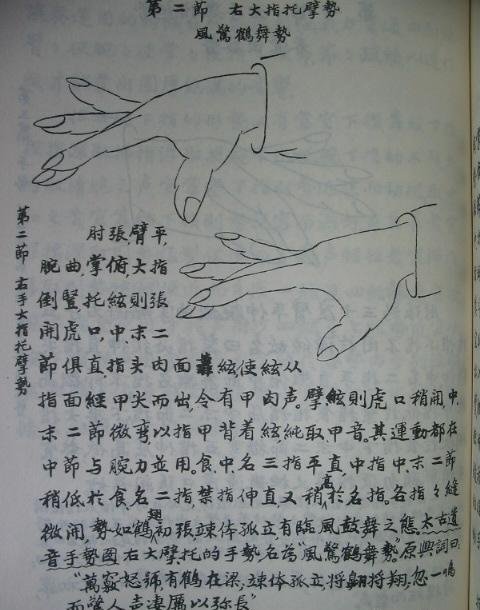 第二節 右大指托擘勢
風驚鶴舞勢
第二節 右手大指托擘勢
肘張,臂平,
腕曲,掌俯大指
倒豎,托絃則張
開虎口,中,末二
節俱直,指头内面 絃使絃从
指面經甲尖而出,令有甲肉声。擘絃則虎口稍闹,中,
末二節微弯以指甲背着絃純取甲音。其運動都在
中節与腕力並用。食,中,名三指平直,中指中,末二節
稍低於食名二指,禁指伸直又稍高於名指。各指々縫
微闹,勢如鶴翅初張竦体孤立,有臨風鼓舞之態。太古遺
音手勢图右大擘托的手勢名為"風驚鶴舞勢"原興詞曰
"萬竅怒號,有鶴在梁,竦体孤立,将翱将翔,忽一鳴
而驚人声凄厲以弥長"